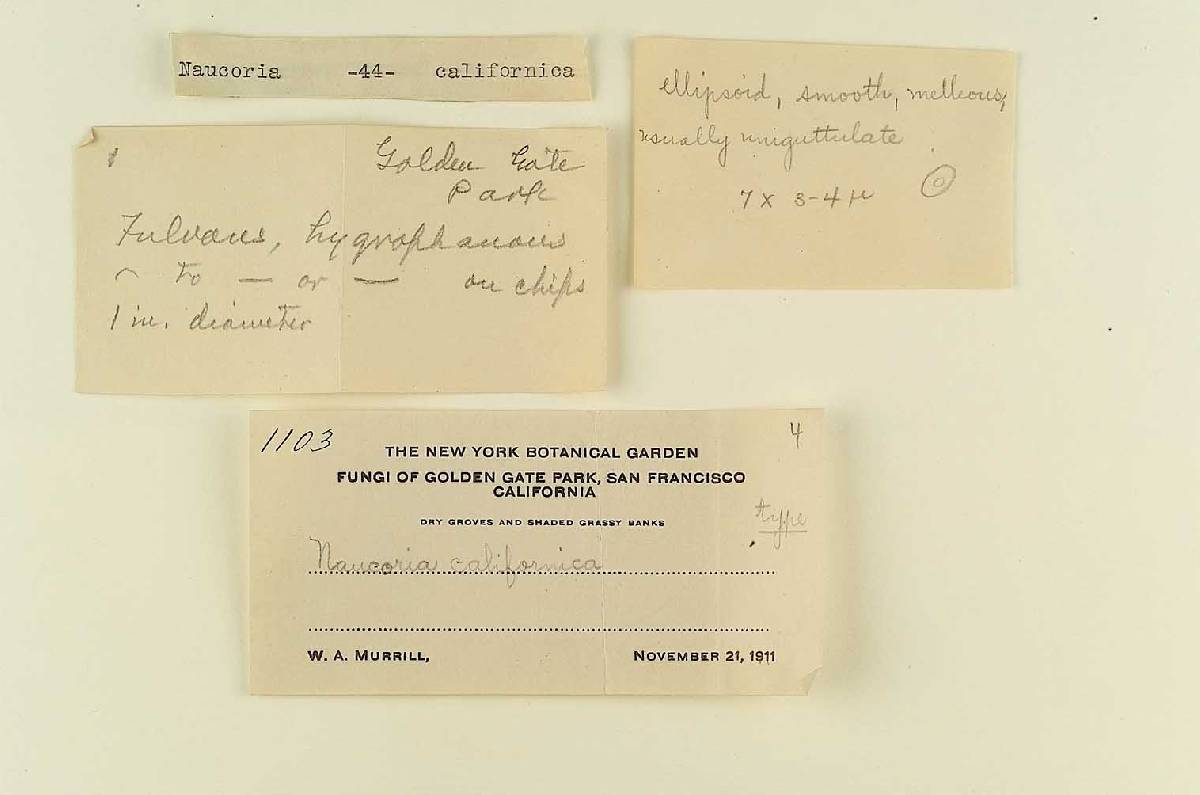 Naucoria -44- californica
ellipsoid, smooth, melleous,
usually uniguttulate
7 x 3-4 µ
Golden Gate
Park
Fulvous, hygrophanous
to — or — on chips
1 in. diameter
1103
4
THE NEW YORK BOTANICAL GARDEN
FUNGI OF GOLDEN GATE PARK, SAN FRANCISCO
CALIFORNIA
DRY GROVES AND SHADED GRASSY BANKS
type
Naucoria californica
W. A. MURRILL, NOVEMBER 21, 1911